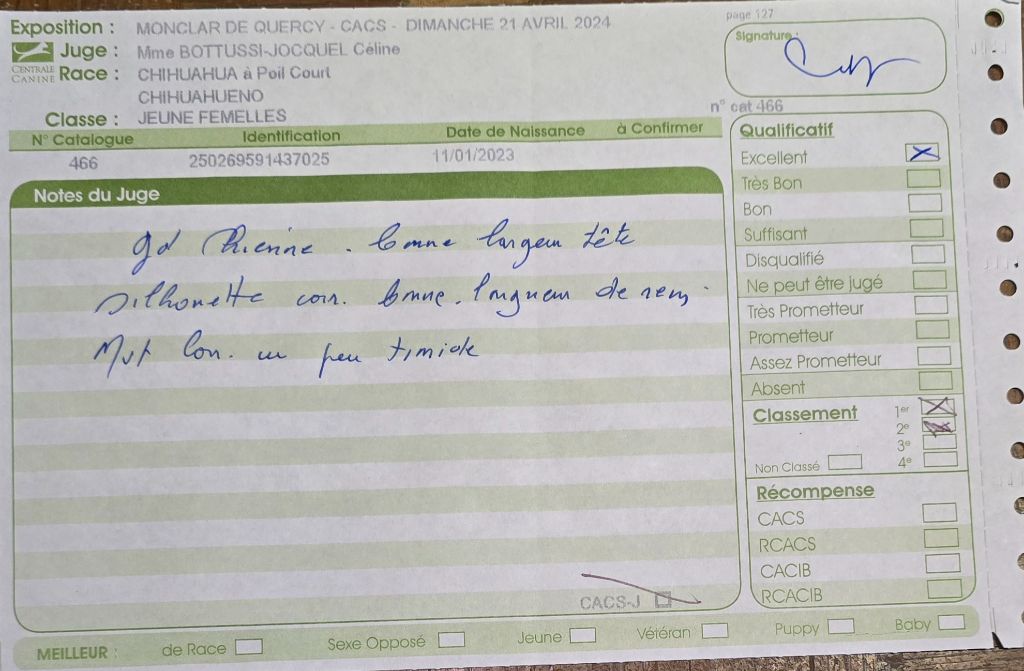 page 127
Exposition : MONCLAR DE QUERCY - CACS - DIMANCHE 21 AVRIL 2024
Signature :
Juge : Mme BOTTUSSI-JOCQUEL Céline
CENTRALE CANINE
Race : CHIHUAHUA à Poil Court
CHIHUAHUENO
Classe : JEUNE FEMELLES
n° cat 466
N° Catalogue Identification Date de Naissance à Confirmer
466 250269591437025 11/01/2023
Notes du Juge
gd Chienne . bonne largeur tête
silhouette corr. bonne . longueur de rein .
Mvt Corr. un peu timide
CACS-J
Qualificatif
Excellent
Très Bon
Bon
Suffisant
Disqualifié
Ne peut être jugé
Très Prometteur
Prometteur
Assez Prometteur
Absent
Classement 1er
2e
3e
Non Classé 4e
Récompense
CACS
RCACS
CACIB
RCACIB
MEILLEUR : de Race Sexe Opposé Jeune Vétéran Puppy Baby